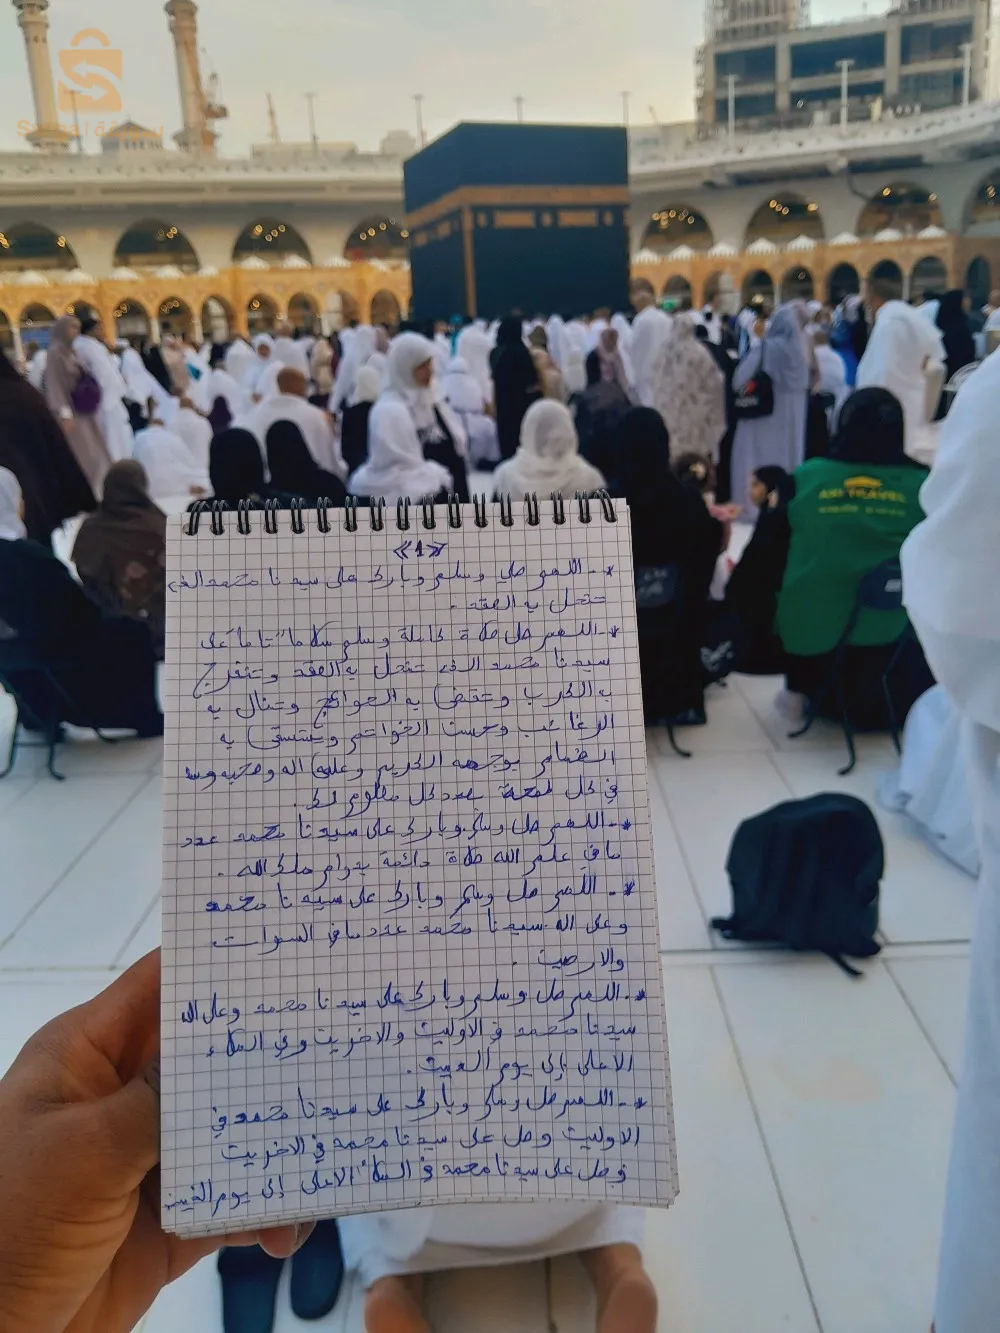 «1»
*- اللهم صل وسلم وبارك على سيدنا محمد الذي
تنحل به العقد .
*- اللهم صل صلاة كاملة وسلم سلاما" تاما" على
سيدنا محمد الذي تنحل به العقد وتنفرج
به الكرب وتقضى به الحوائج وتنال به
الرغائب وحسن الخواتم ويستسقى به
الغمام بوجهه الكريم وعلى اله وصحبه وس
في كل لمحة بعدد كل معلوم لك .
*- اللهم صل وسلم وبارك على سيدنا محمد عدد
مافي علم الله صلاة دائمة بدوام ملك الله .
*- اللهم صل وسلم وبارك على سيدنا محمد
وعلى اله سيدنا محمد عدد مافي السموات
والارضين .
*- اللهم صل وسلم وبارك على سيدنا محمد وعلى اله
سيدنا محمد في الاولين والاخرين وفي الملاء
الاعلى إلى يوم الدين .
*- اللهم صل وسلم وبارك على سيدنا محمد في
الاولين وصل على سيدنا محمد في الاخرين
وصل على سيدنا محمد في الملاء الاعلى إلى يوم الدين
TRAVEL